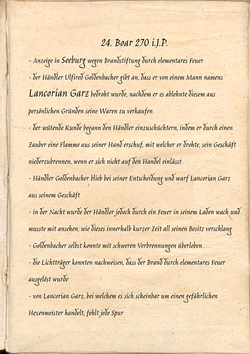 24. Boar 270 i.J.P.
- Anzeige in Seeburg wegen Brandstiftung durch elementares Feuer
- der Händler Ulfried Goldenbacher gibt an, dass er von einem Mann namens
Lancorian Garz bedroht wurde, nachdem er es ablehnte diesem aus
persönlichen Gründen seine Waren zu verkaufen
- der wütende Kunde begann den Händler einzuschüchtern, indem er durch einen
Zauber eine Flamme aus seiner Hand erschuf, mit welcher er drohte, sein Geschäft
niederzubrennen, wenn er sich nicht auf den Handel einlässt
- Händler Goldenbacher blieb bei seiner Entscheidung und warf Lancorian Garz
aus seinem Geschäft
- in der Nacht wurde der Händler jedoch durch ein Feuer in seinem Laden wach und
musste mit ansehen, wie dieses innerhalb kurzer Zeit all seinen Besitz verschlang
- Goldenbacher selbst konnte mit schweren Verbrennungen überleben
- die Lichtträger konnten nachweisen, dass der Brand durch elementares Feuer
ausgelöst wurde
- von Lancorian Garz, bei welchem es sich scheinbar um einen gefährlichen
Hexenmeister handelt, fehlt jede Spur